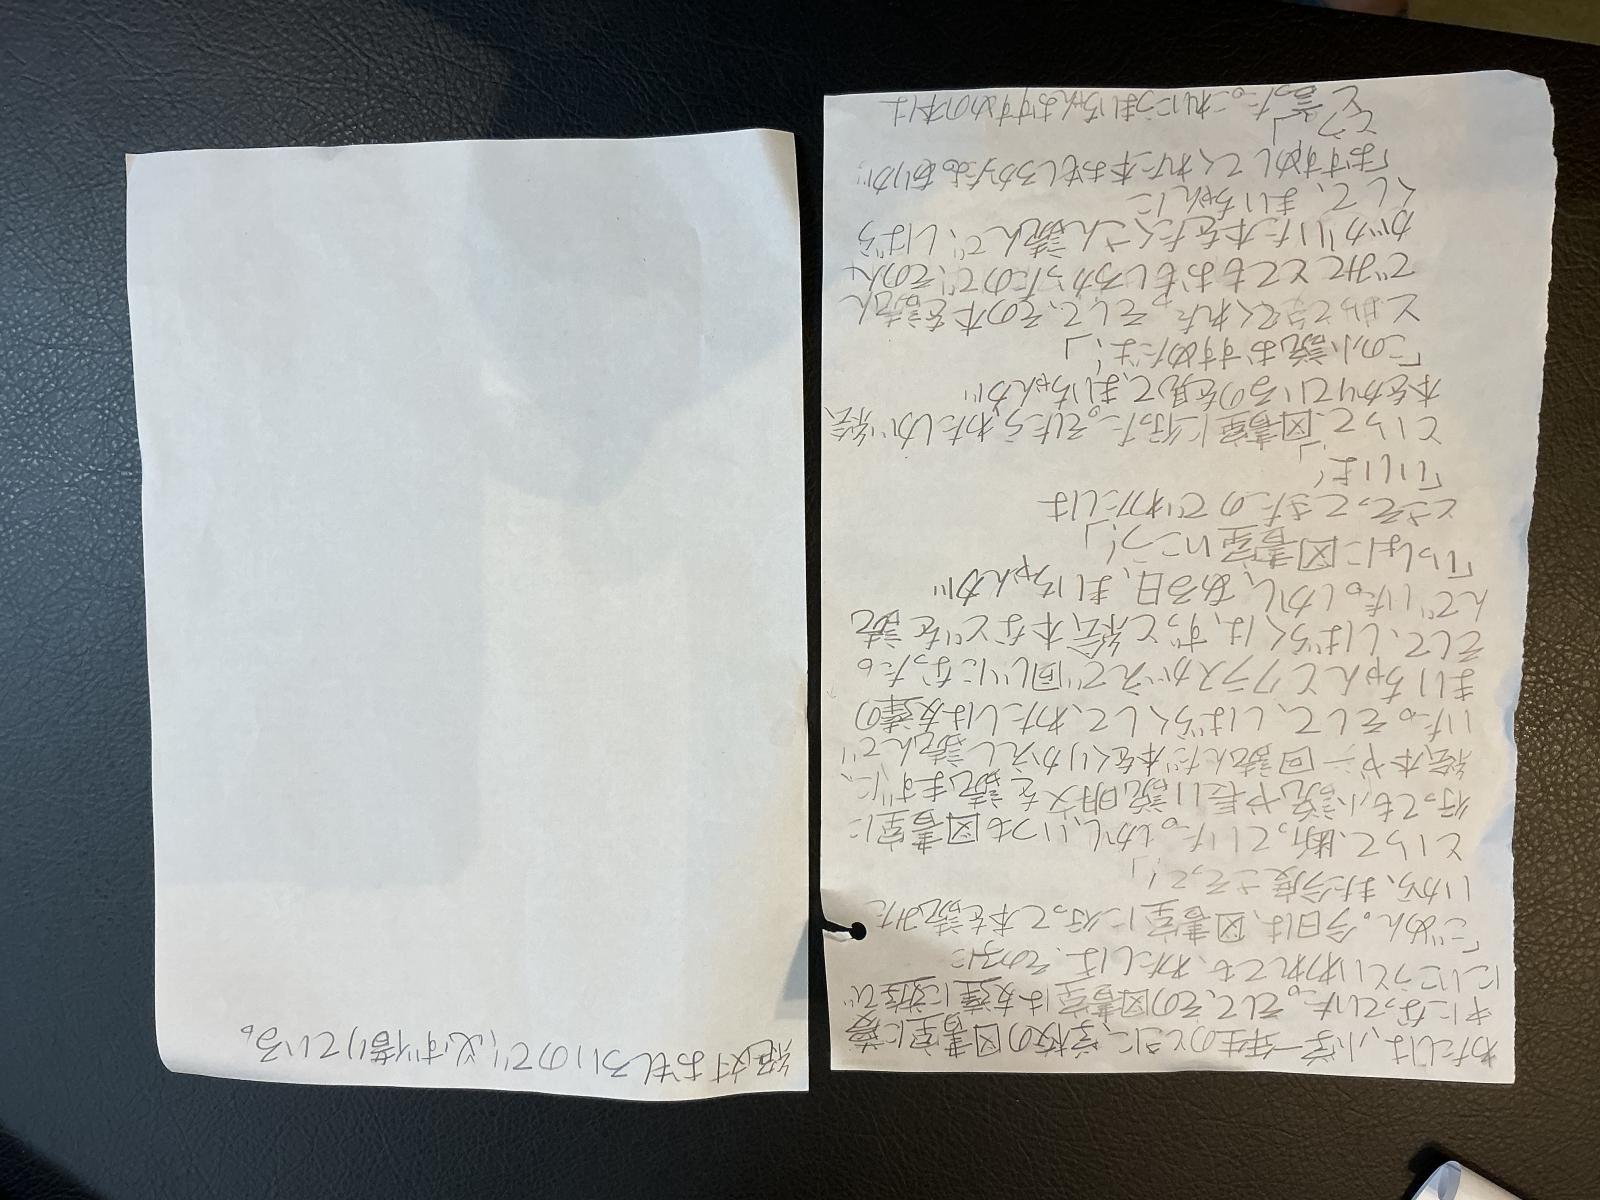 わたしは、小学一年生のときに、学校の図書室に夢
中になっていた。そして、その図書室は友達に遊び
にいこうといわれても、わたしは、その子に
「ごめん。今日は、図書室に行って本を読みた
いから、また今度さそって!」
といって、断っていた。しかし、いつも図書室に
行っても小説や長い説明文を読まずに、
絵本や一回読んだ本をくりかえし読んで
いた。そして、しばらくして、わたしは友達の
まいちゃんとクラスがえで同じになった。
そして、しばらくは、ずっと絵本などを読
んでいた。しかし、ある日、まいちゃんが
「いっしょに図書室いこう!」
とさそってきたのでわたしは
「いいよ!」
といって、図書室に行った。そしたらわたしが絵
本をかりているのを見て、まいちゃんが
「この小説おすすめだよ!」
といってくれた。そして、その本を読ん
でみてとてもおもしろかったので、その人
がかいた本をたくさん読んで、しばら
くして、まいちゃんに
「おすすめしてくれた本おもしろかったよ。ありが
とう」
と言った。これいこうまいちゃんおすすめの本は
絶対おもしろいので、必ず借りている。